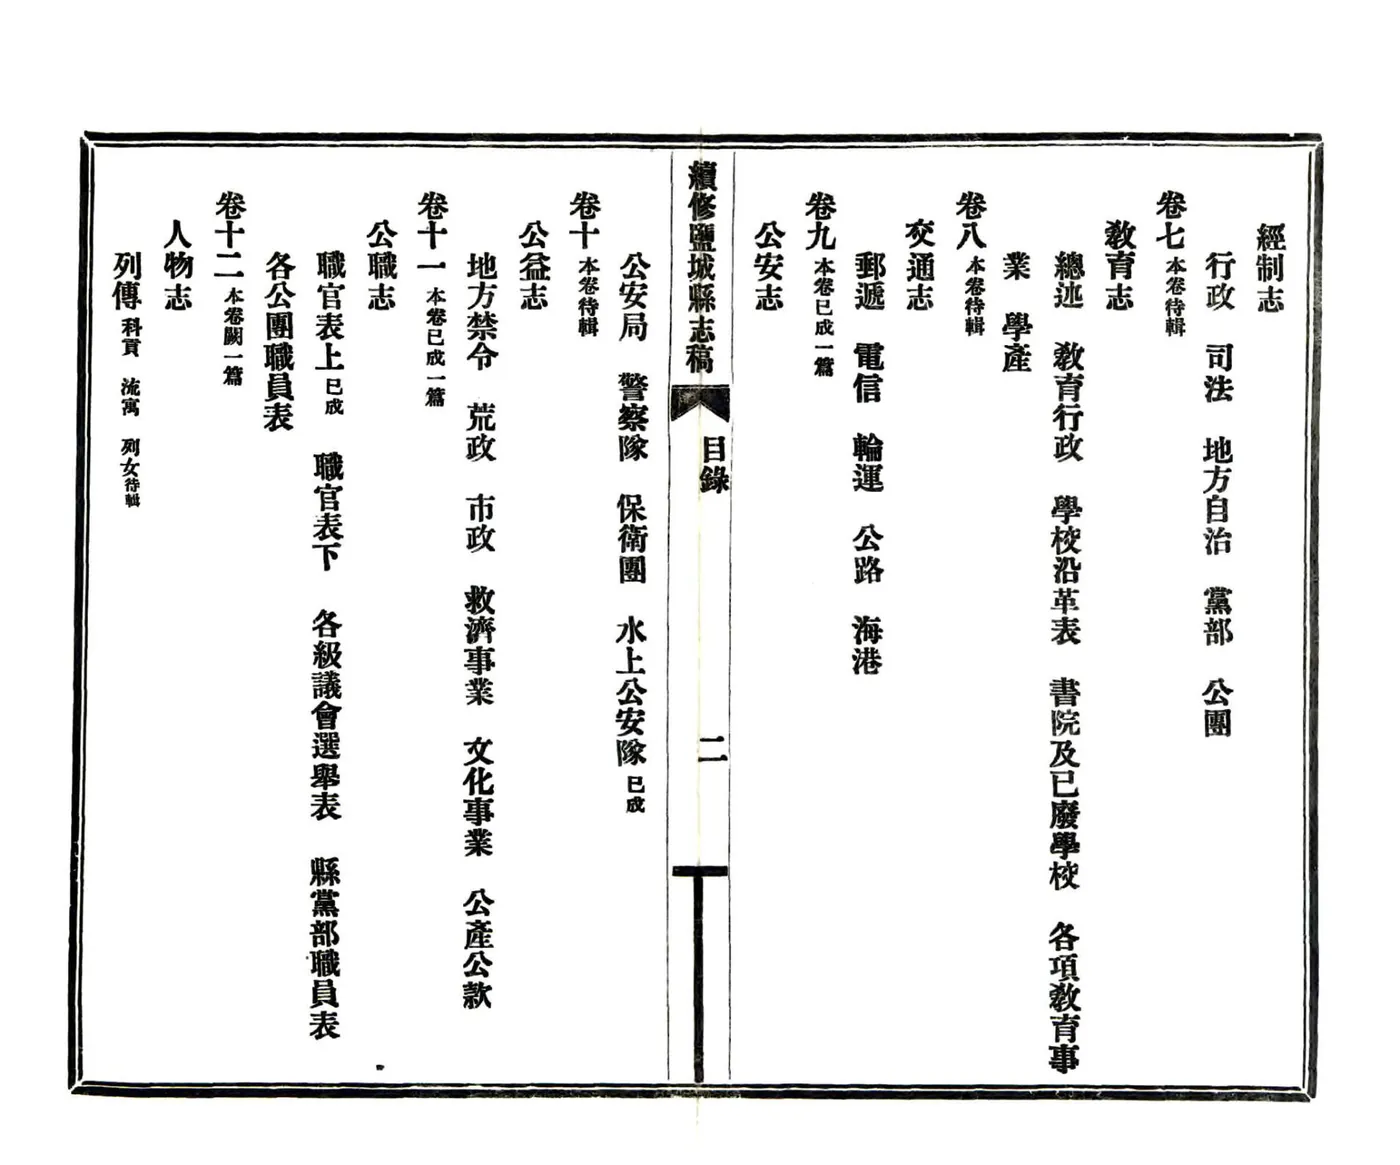 經制志
行政　司法　地方自治　黨部　公團
卷七 本卷待輯
教育志
總述　教育行政　學校沿革表　書院及已廢學校　各項教育事
業　學產
卷八 本卷待輯
交通志
郵遞　電信　輪運　公路　海港
卷九 本卷已成一篇
公安志
續修鹽城縣志稿　目錄　二
公安局　警察隊　保衛團　水上公安隊 已成
卷十 本卷待輯
公益志
地方禁令　荒政　市政　救濟事業　文化事業　公產公款
卷十一 本卷已成一篇
公職志
職官表上 已成　職官表下　各級議會選舉表　縣黨部職員表
各公團職員表
卷十二 本卷闕一篇
人物志
列傳 科貢　流寓　列女待輯